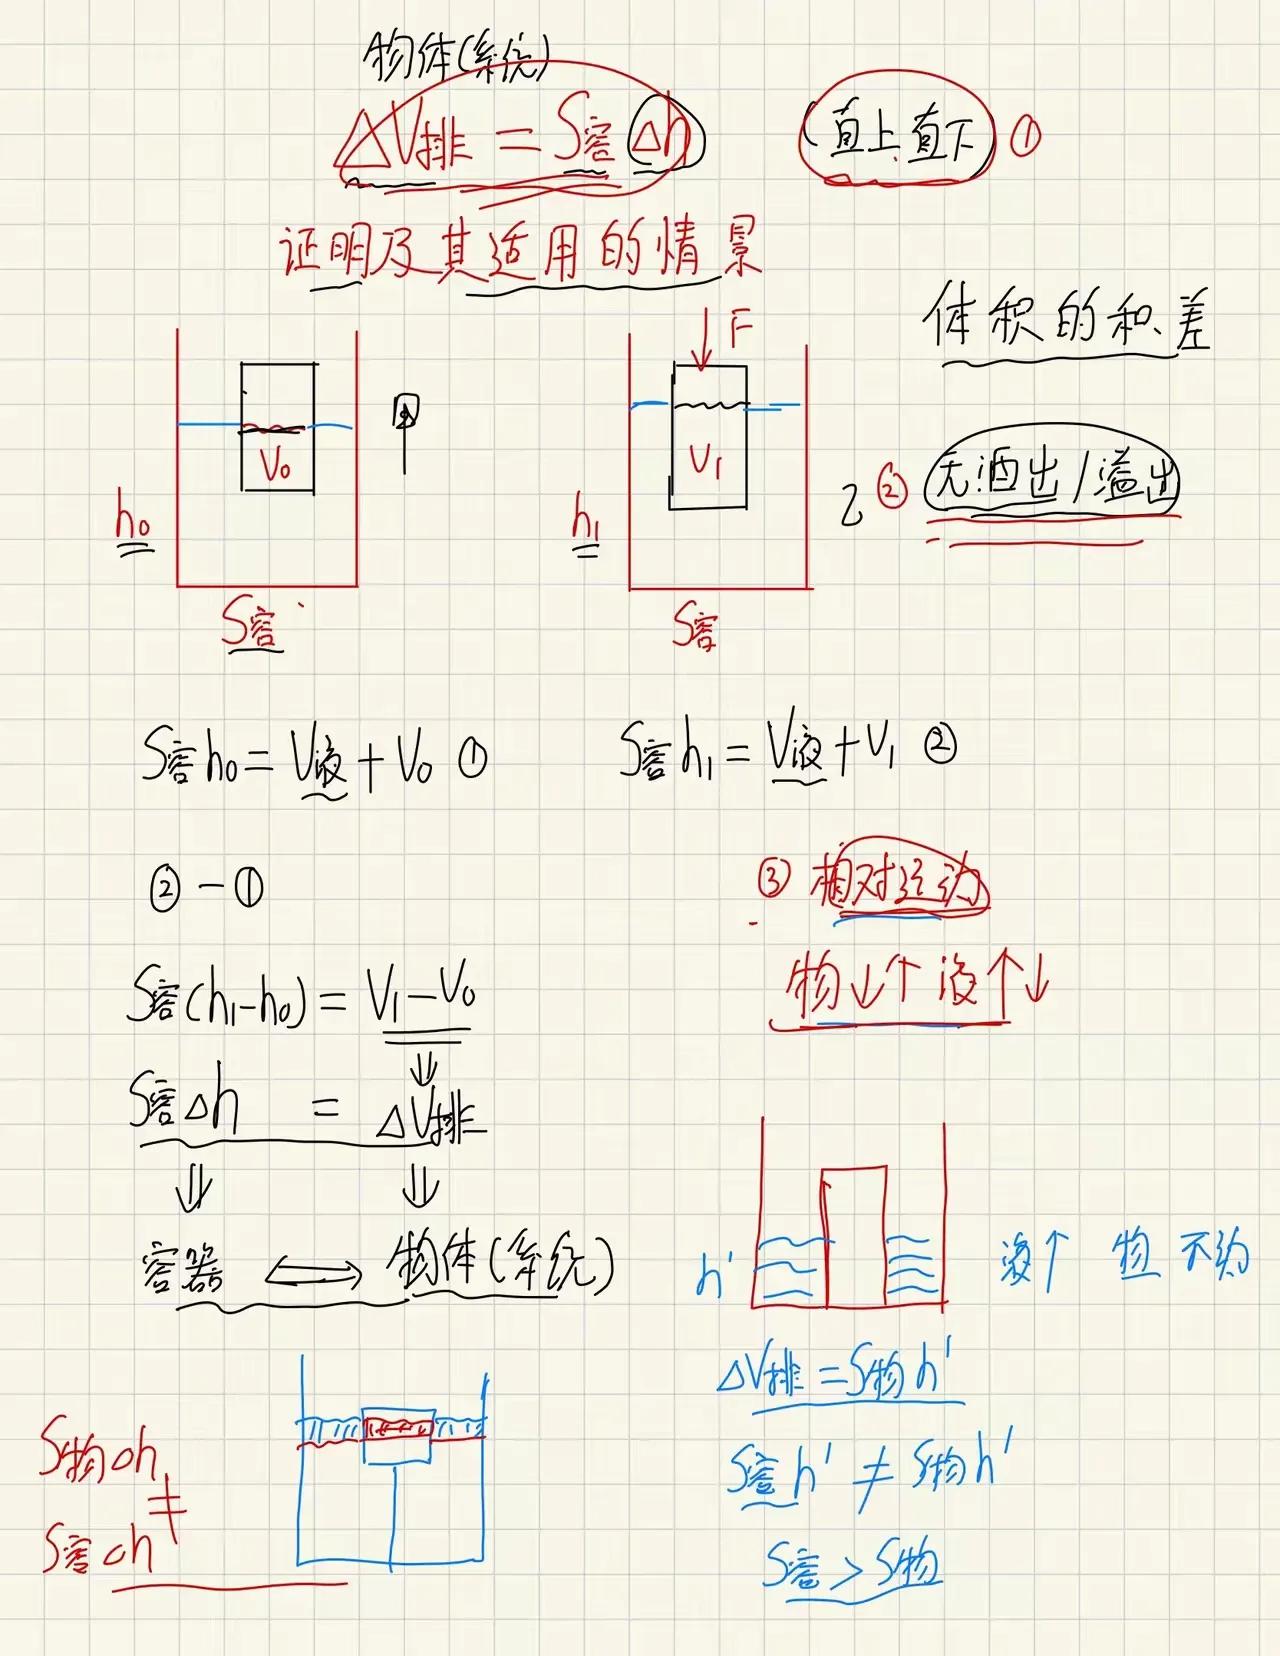 物体(系统)
△V排 = S容 △h
(直上直下) ①
证明及其适用的情景
体积的和差
F
V₀
V₁
h₀
h₁
② 无洒出/溢出
S容
S容
S容h₀ = V液 + V₀ ①
S容h₁ = V液 + V₁ ②
② - ①
③ 相对运动
S容(h₁-h₀) = V₁-V₀
物↓↑ 液↑↓
⇓
S容△h = △V排
⇓ ⇓
容器 ⟺ 物体(系统)
h'
液↑ 物 不动
△V排 = S物h'
S物△h
≠
S容△h
S容h' ≠ S物h'
S容 > S物